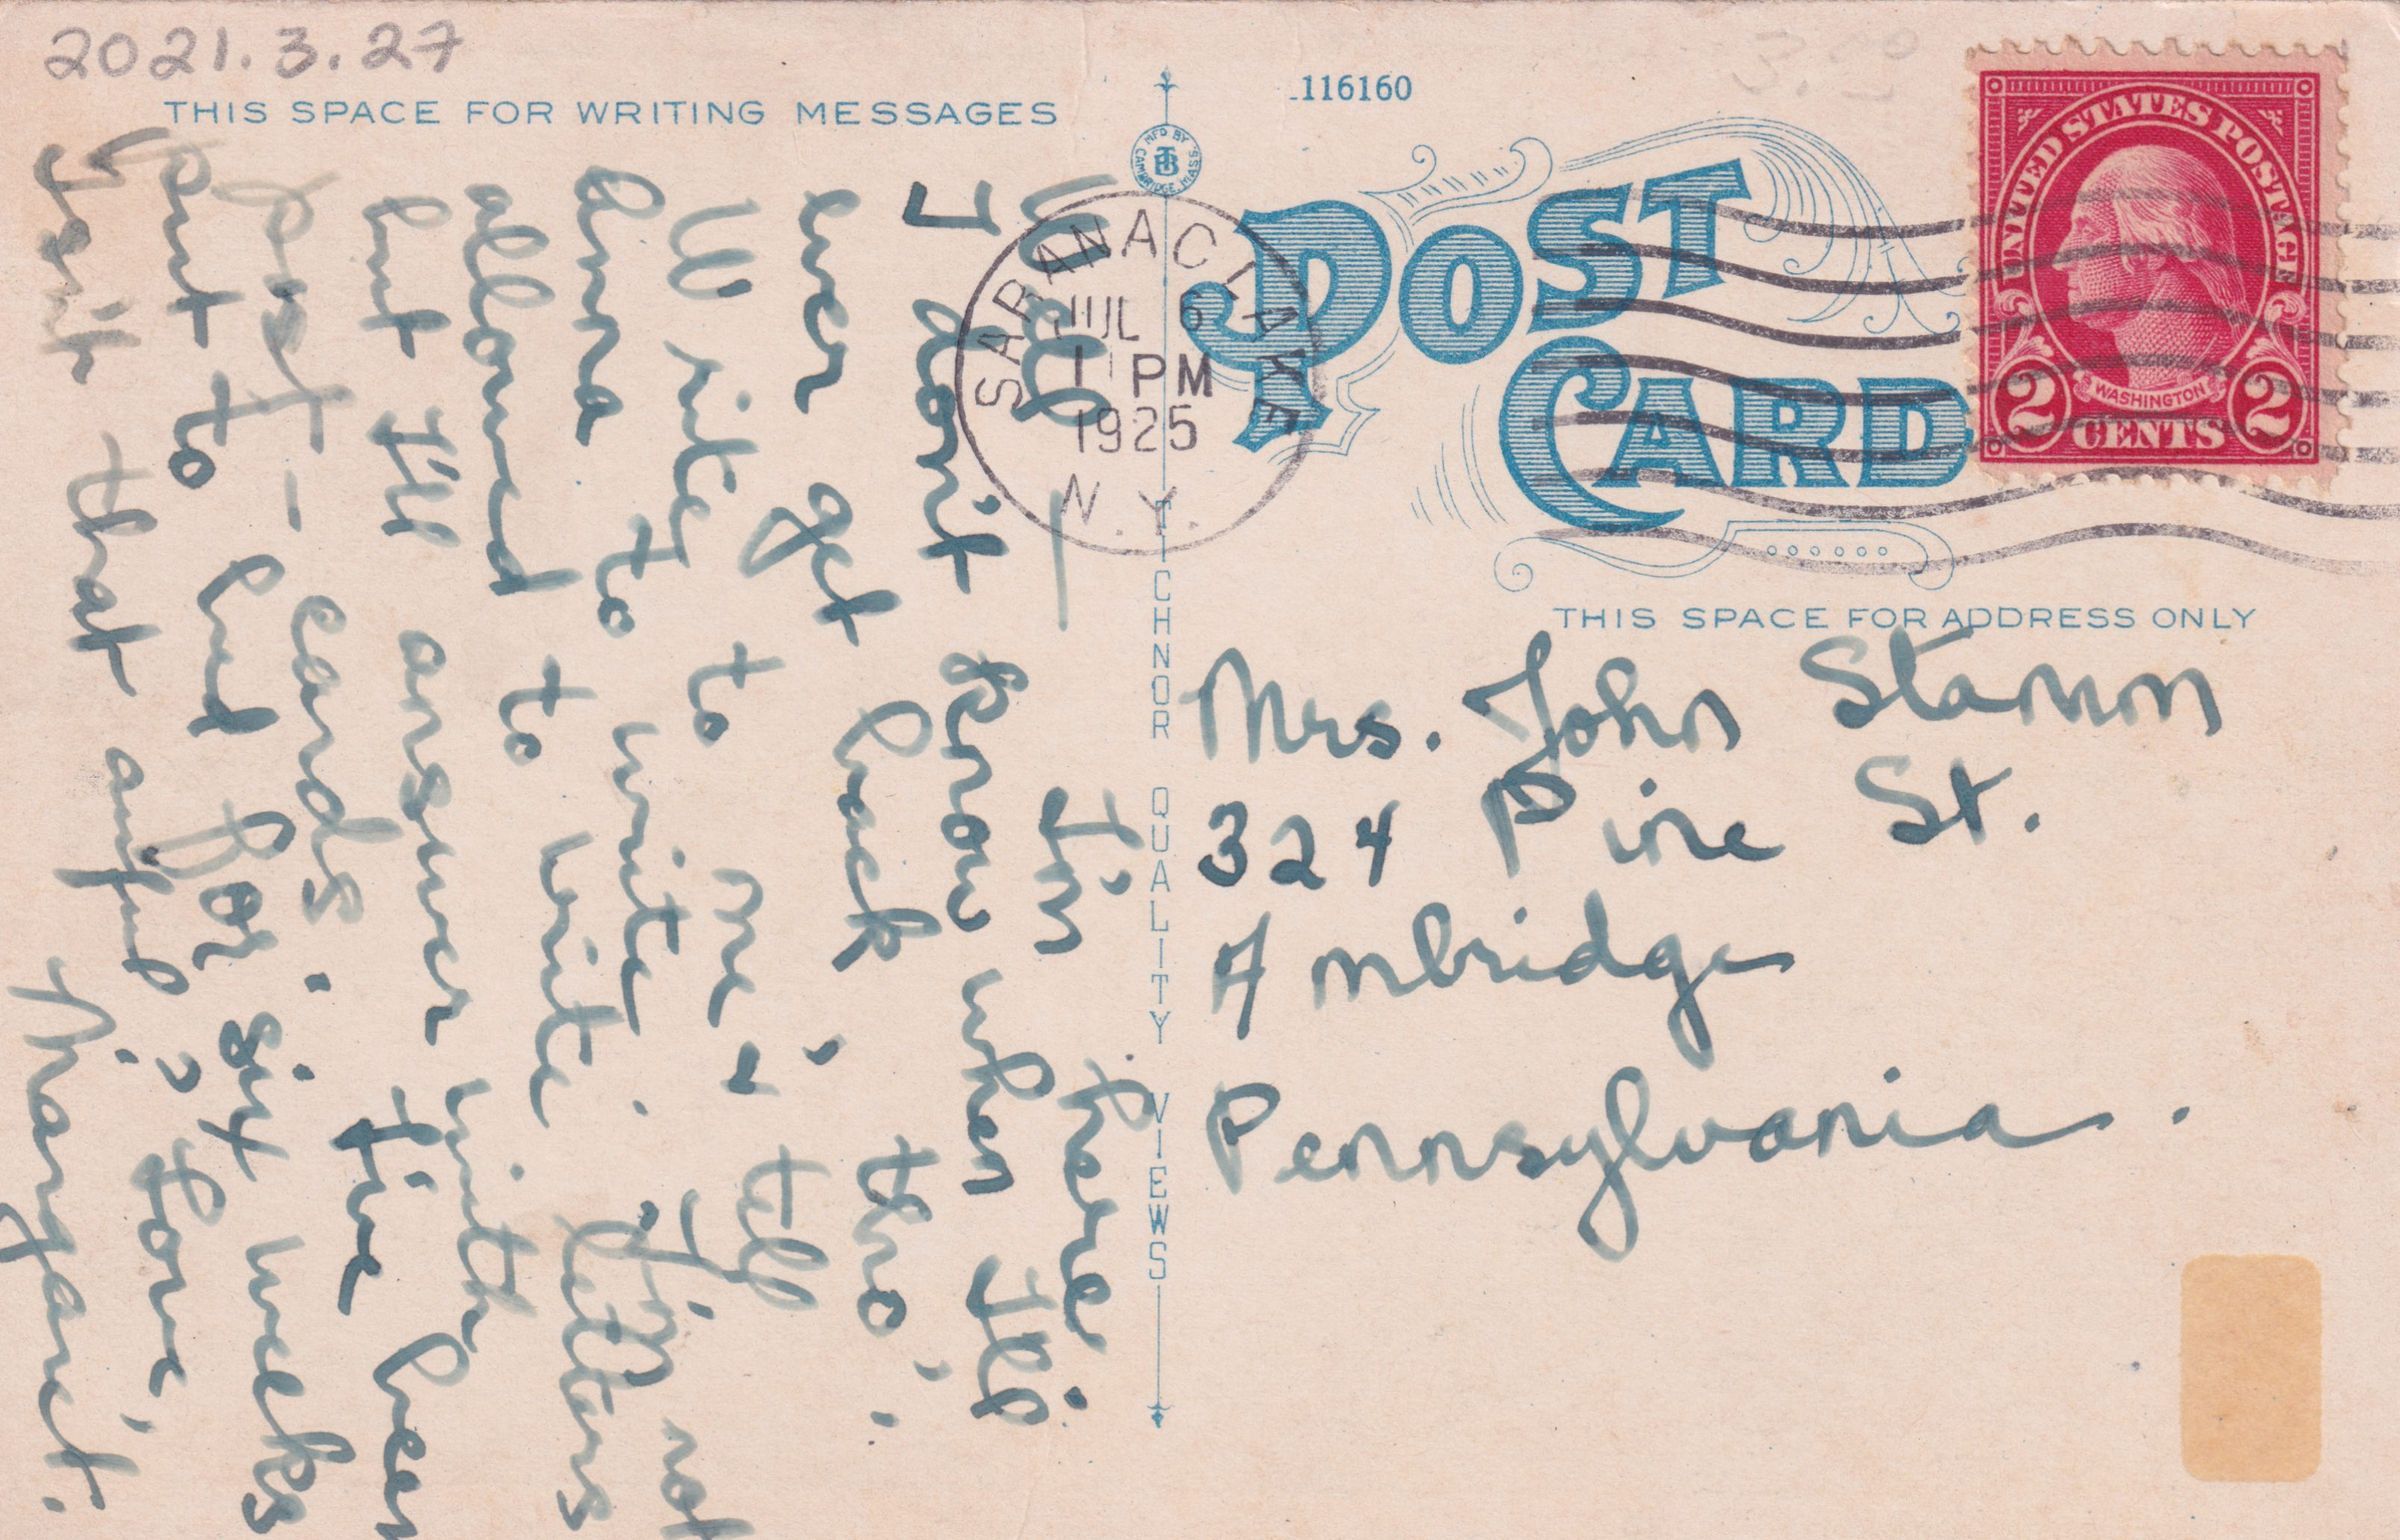 2021.3.27
THIS SPACE FOR WRITING MESSAGES
Well — I'm here.
I don't know when I'll
ever get back, tho'.
Write to me & tell
Anna to write. I'm not
allowed to write letters
but I'll answer with
post-cards. I've been
put to bed for six weeks
Isn't that awful? Love,
Margaret.
MFD BY
TB
CAMBRIDGE, MASS.
TICHNOR QUALITY VIEWS
116160
POST CARD
SARANAC LAKE
JUL 6
11 PM
1925
N.Y.
UNITED STATES POSTAGE
WASHINGTON
2 CENTS 2
THIS SPACE FOR ADDRESS ONLY
Mrs. John Stamm
324 Pine St.
Ambridge
Pennsylvania.